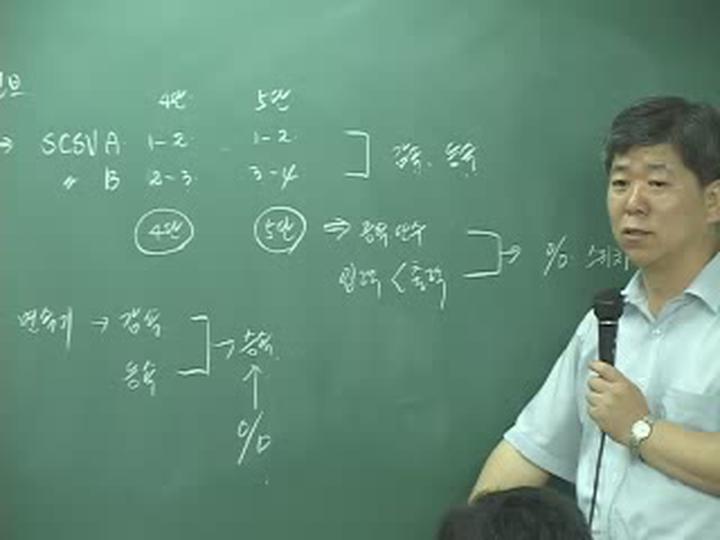 4단 5단
→ SCSV A 1-2 1-2
〃 B 2-3 3-4
감속, 등속
4단 5단 ⇒ 증속 변속
입력 < 출력
→ O/D 스위치
변속기 → 감속
등속
→ 증속
↑
O/D